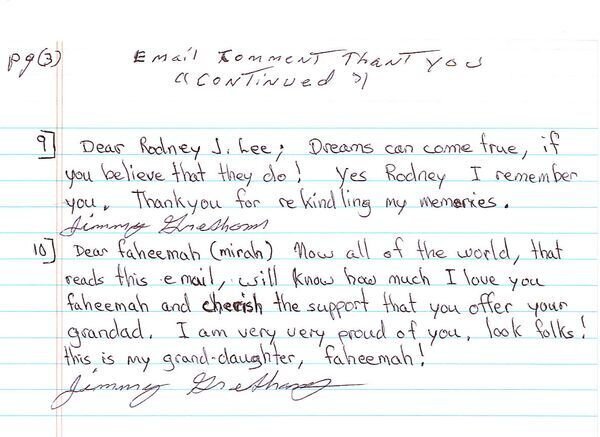 pg(3)
Email Comment Thank You
"Continued"
9] Dear Rodney J. Lee; Dreams can come true, if
you believe that they do! Yes Rodney I remember
you. Thankyou for rekindling my memories.
Jimmy Gresham
10] Dear faheemah (mirah) Now all of the world, that
reads this email, will know how much I love you
faheemah and cherish the support that you offer your
grandad. I am very very proud of you, look folks!
this is my grand-daughter, faheemah!
Jimmy Gresham